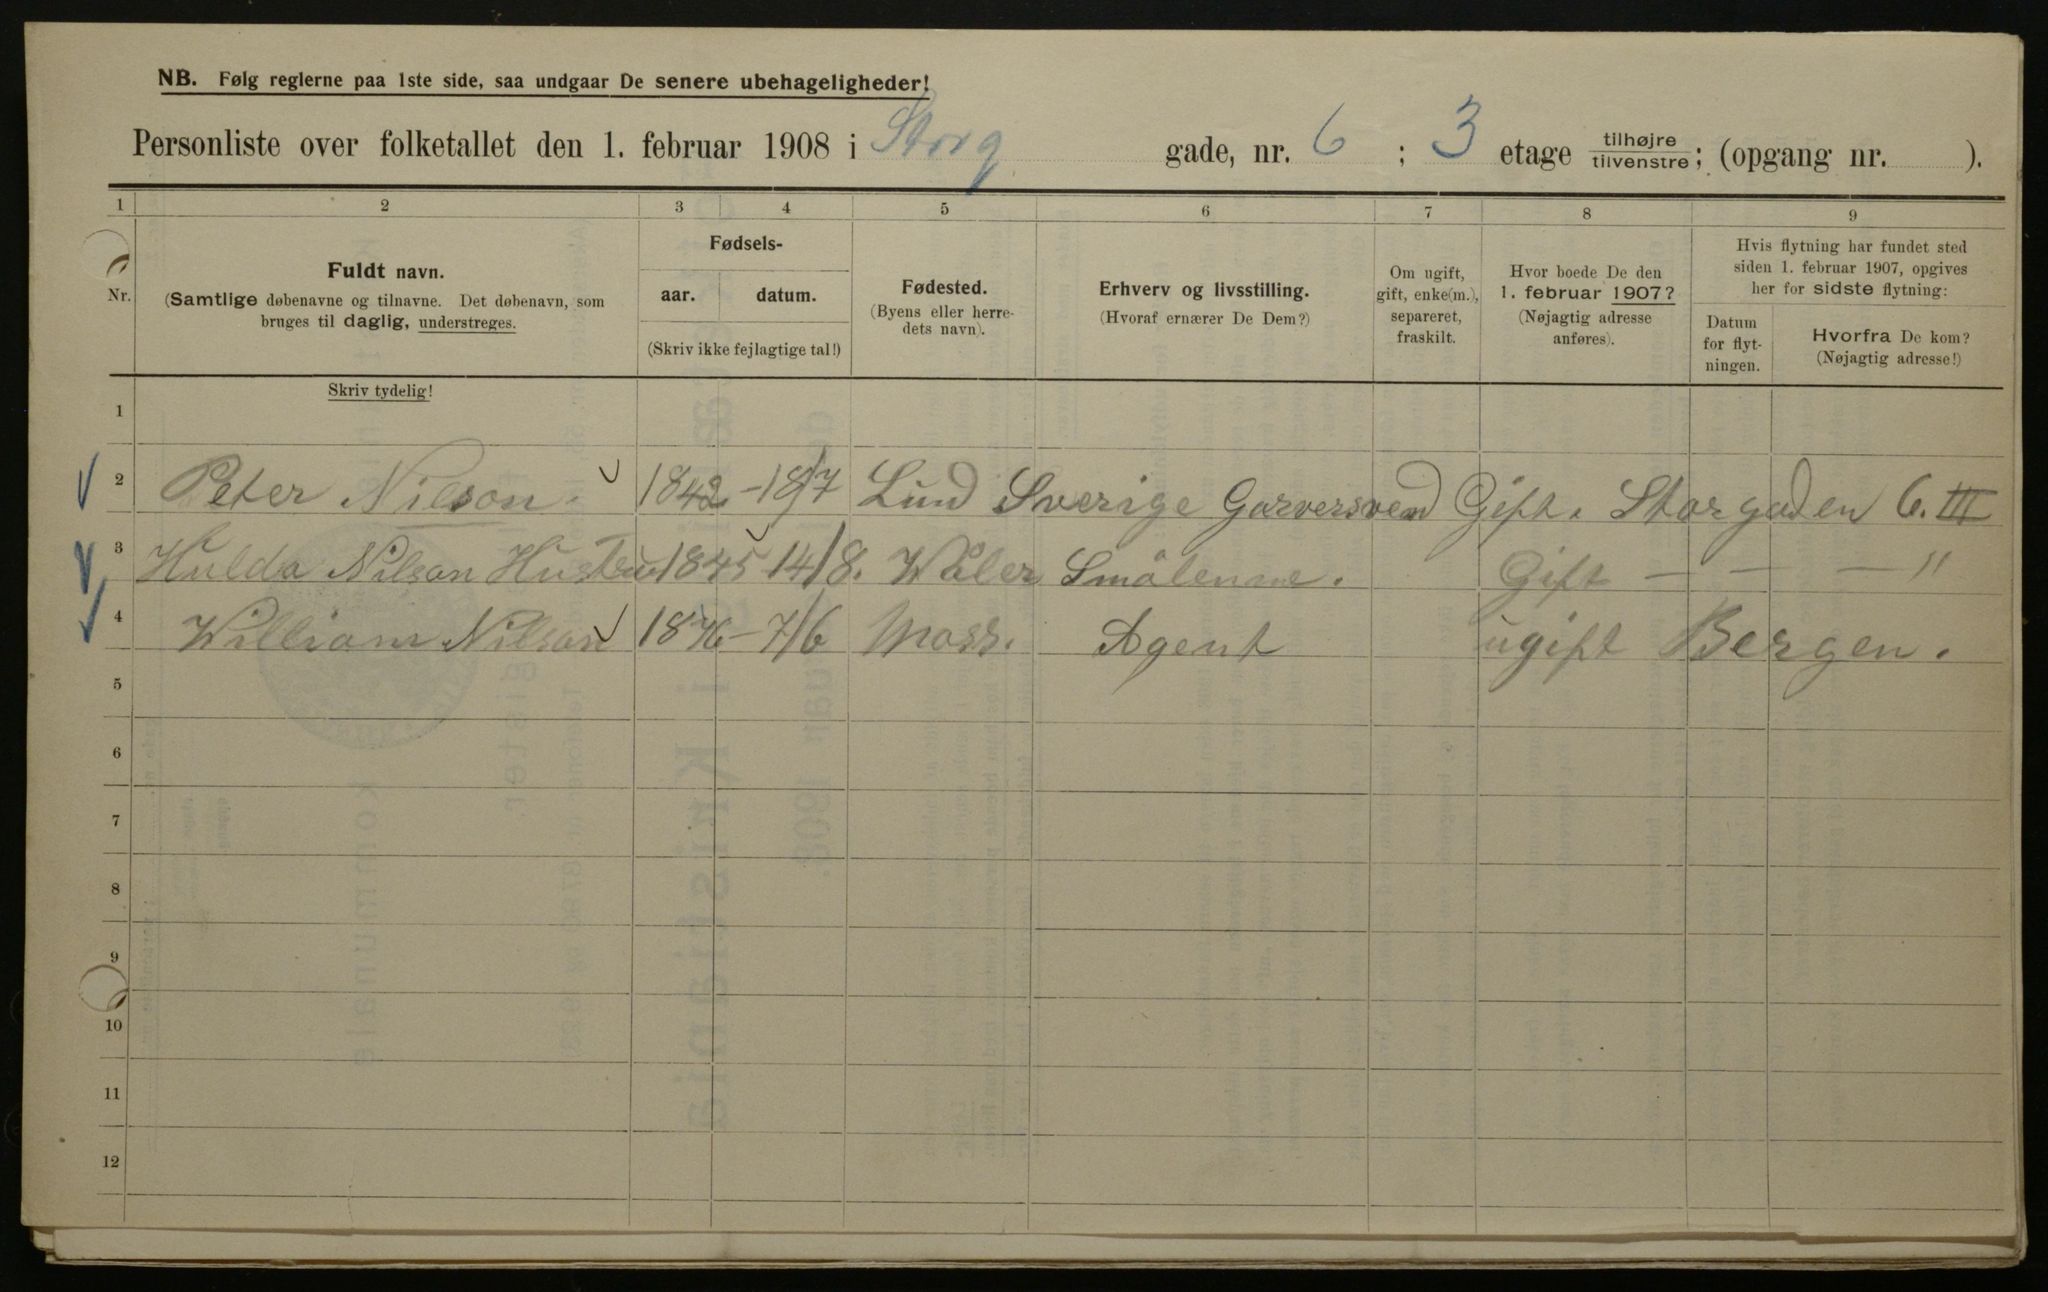 NB. Følg reglerne paa 1ste side, saa undgaar De senere ubehageligheder!
Personliste over folketallet den 1. februar 1908 i Storg gade, nr. 6 ; 3 etage tilhøjre/tilvenstre; (opgang nr. ).
1 2 3 4 5 6 7 8 9
Nr.
Fuldt navn.
(Samtlige døbenavne og tilnavne. Det døbenavn, som
bruges til daglig, understreges.
Skriv tydelig!
Fødsels-
aar. datum.
(Skriv ikke fejlagtige tal!)
Fødested.
(Byens eller herre-
dets navn).
Erhverv og livsstilling.
(Hvoraf ernærer De Dem?)
Om ugift,
gift, enke(m.),
separeret,
fraskilt.
Hvor boede De den
1. februar 1907?
(Nøjagtig adresse
anføres).
Hvis flytning har fundet sted
siden 1. februar 1907, opgives
her for sidste flytning:
Datum
for flyt-
ningen.
Hvorfra De kom?
(Nøjagtig adresse!)
1
2 Peter Nilson. 1842 - 18/7 Lund Sverige Garversvend Gift. Storgaden 6. III
3 Hulda Nilson Hustru 1845 - 14/8. Wåler Smålenne. Gift — — — "
4 William Nilson 1876 - 7/6 Moss. Agent ugift Bergen.
5
6
7
8
9
10
11
12